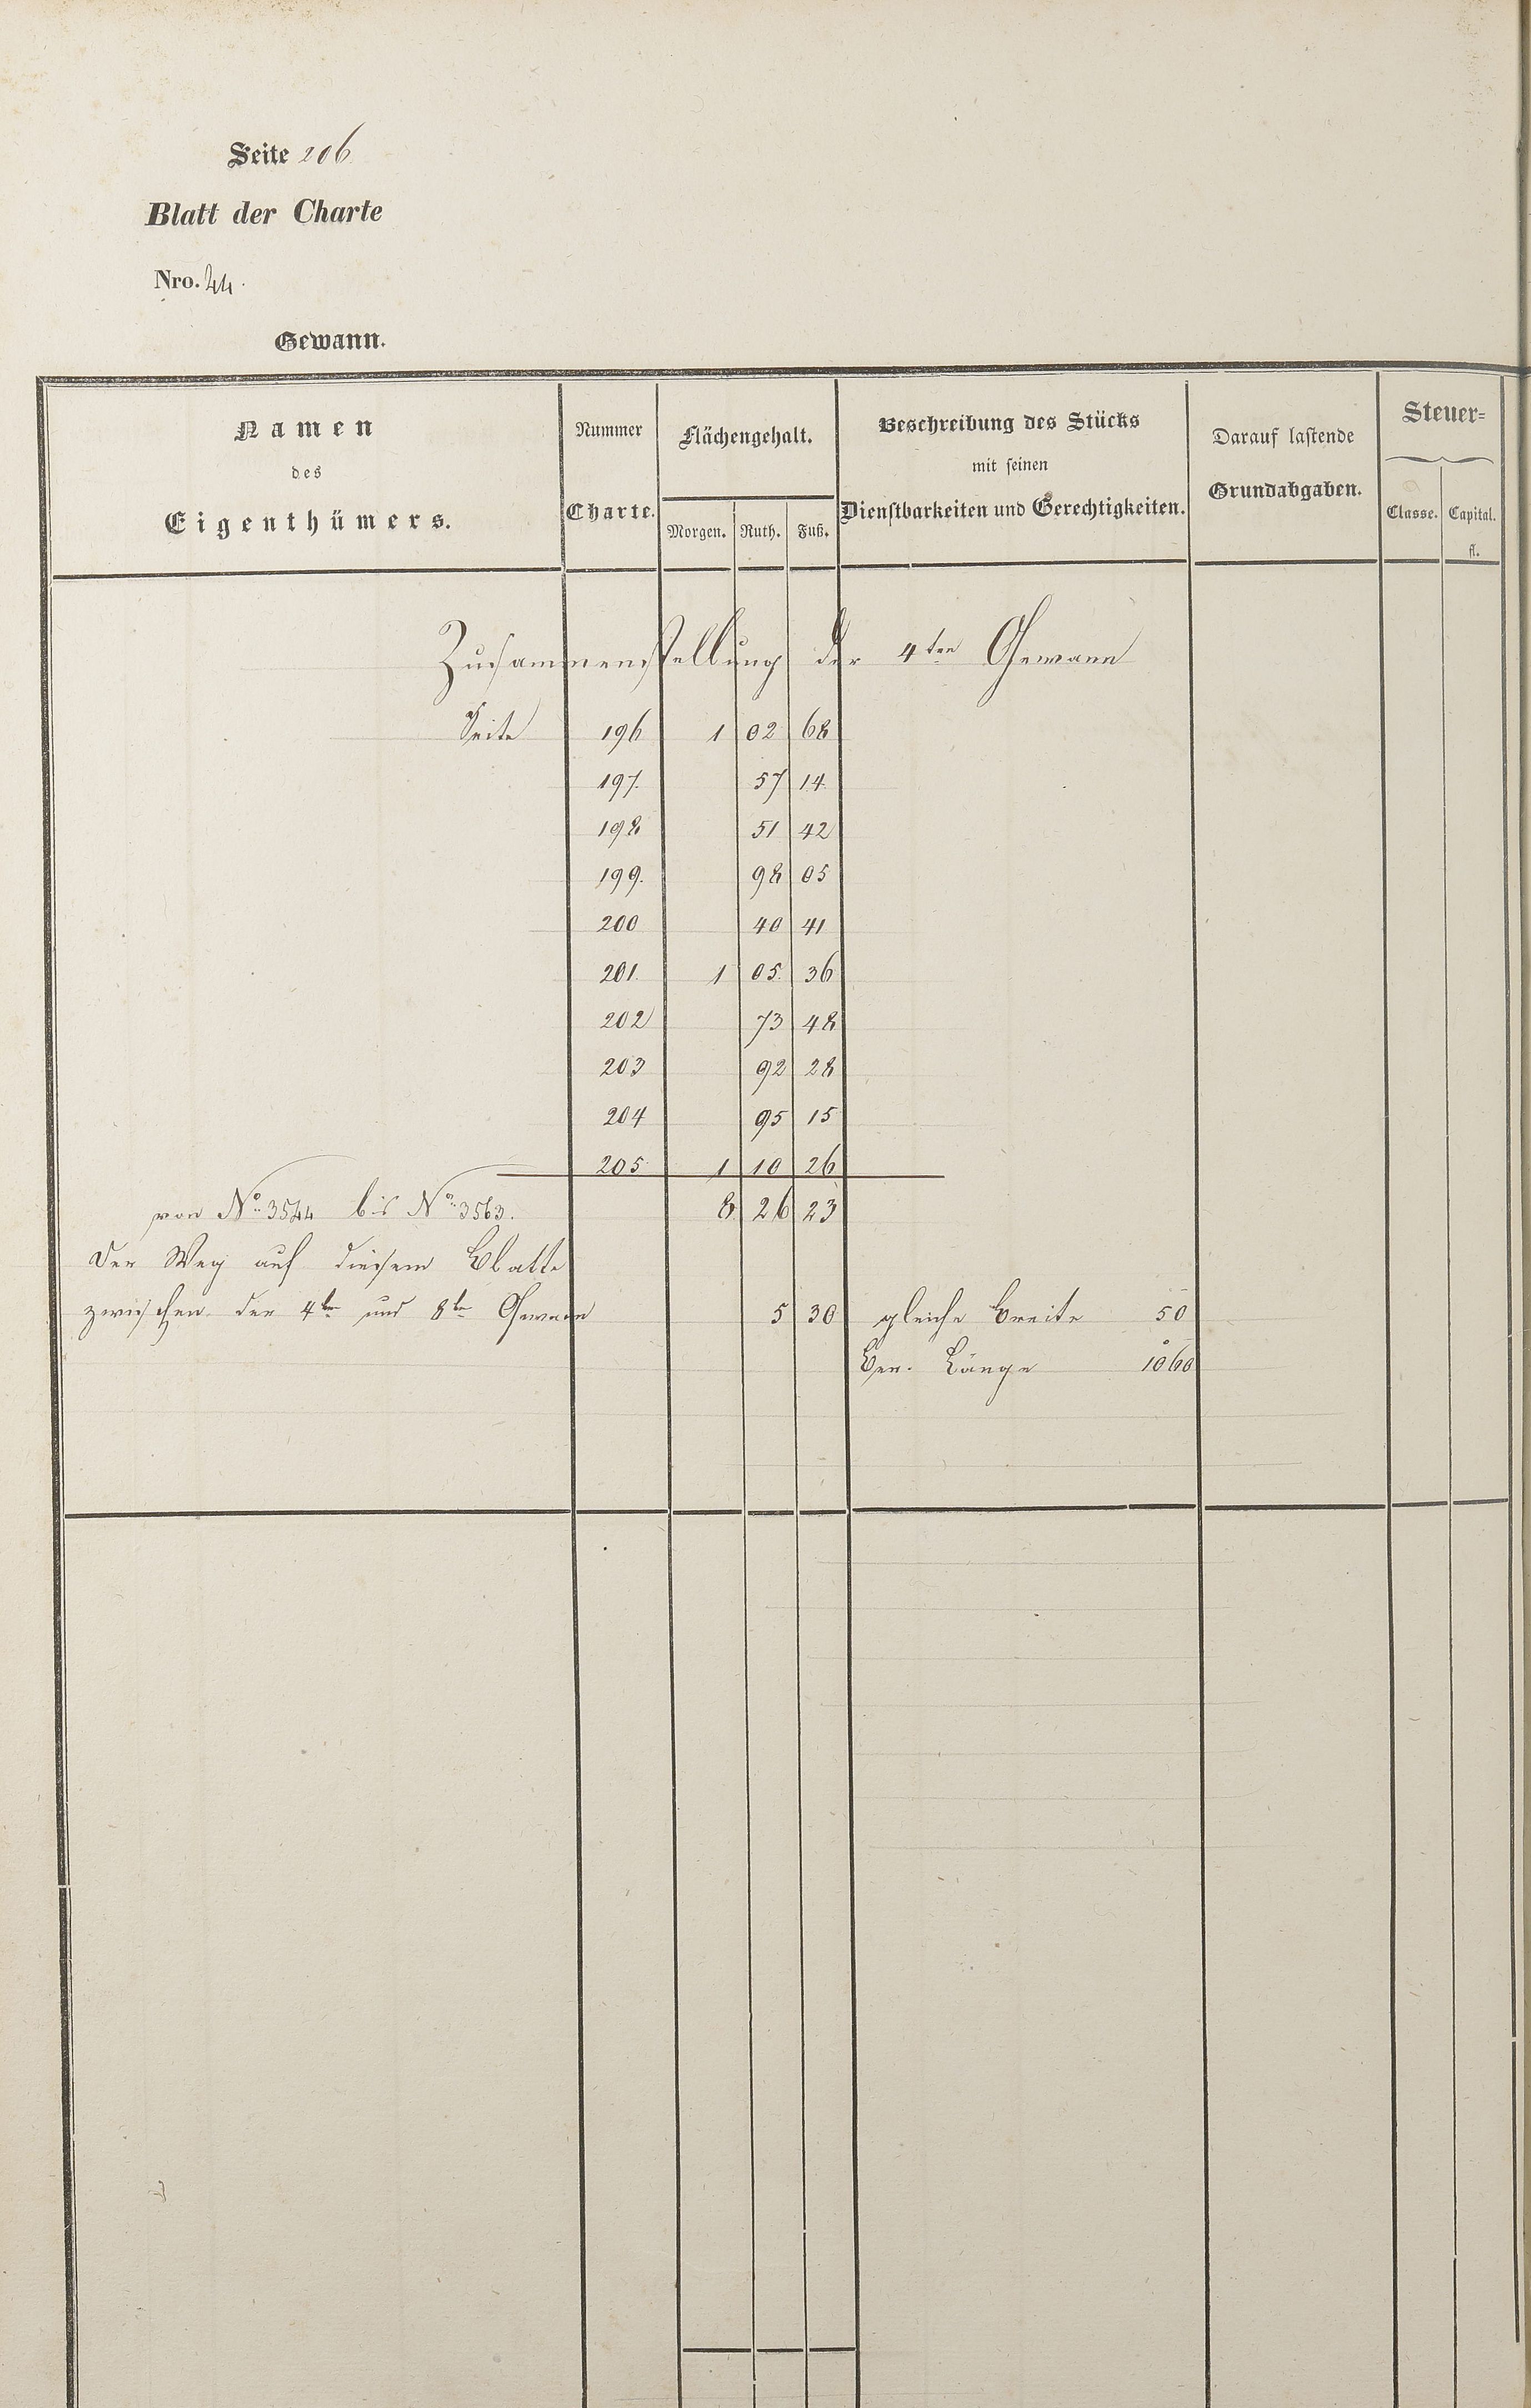 Seite 206
Blatt der Charte
Nro. 44.
Gewann.
Namen
des
Eigenthümers.
Nummer
Charte.
Flächengehalt.
Morgen. Ruth. Fuß.
Beschreibung des Stücks
mit seinen
Dienstbarkeiten und Gerechtigkeiten.
Darauf lastende
Grundabgaben.
Steuer=
Classe. Capital.
fl.
Zusammenstellung der 4ten Gewann
Seite 196 1 02 68
197. 57 14
198 51 42
199. 98 05
200 40 41
201. 1 05. 36
202 73 48
203 92 28
204 95 15
205 1 10 26
von No. 3544 bis No. 3563. 8. 26 23
Der Weg auf diesem Blatte
zwischen der 4ten und 8ten Gewann 5 30 gleiche Breite 50
Ber. Länge 1060